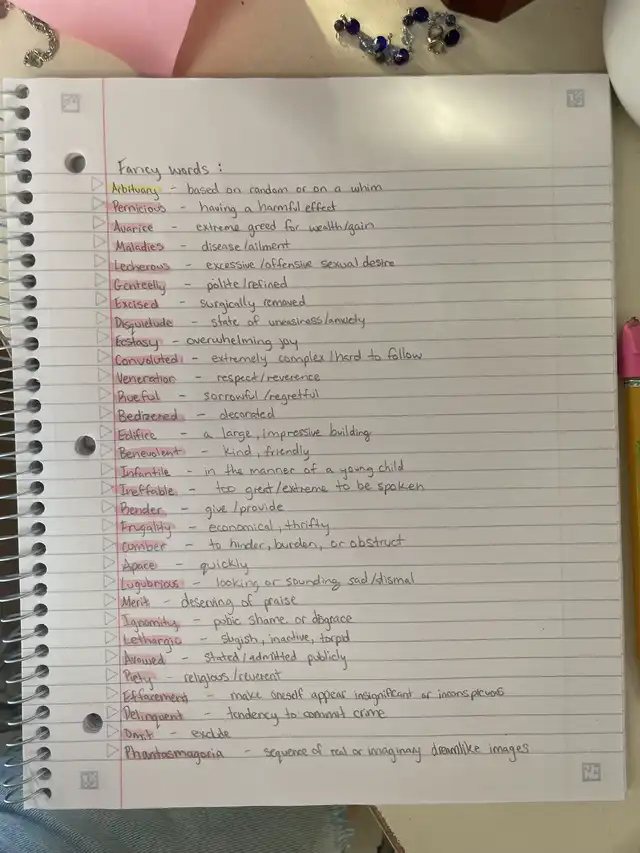 Fancy words :
Arbituary - based on random or on a whim
Pernicious - having a harmful effect
Avarice - extreme greed for wealth/gain
Maladies - disease/ailment
Lecherous - excessive/offensive sexual desire
Genteelly - polite/refined
Excised - surgically removed
Disquidude - state of uneasiness/anxiety
Ecstasy - overwhelming joy
Convoluted - extremely complex/hard to follow
Veneration - respect/reverence
Rueful - sorrowful/regretful
Bedizered - decorated
Edifice - a large, impressive building
Benevolent - kind, friendly
Infantile - in the manner of a young child
Ineffable - too great/extreme to be spoken
Bender - give/provide
Frugality - economical, thrifty
Cumber - to hinder, burden, or obstruct
Apace - quickly
Lugubrious - looking or sounding sad/dismal
Merit - deserving of praise
Ignomity - pubic shame or disgrace
Lethargic - slugish, inactive, torpid
Avowed - stated/admitted publicly
Piety - religious/reverent
Effacement - make oneself appear insignificant or inconspicuos
Delinquent - tendency to commit crime
Omit - exclude
Phantasmagoria - sequence of real or imaginary dreamlike images